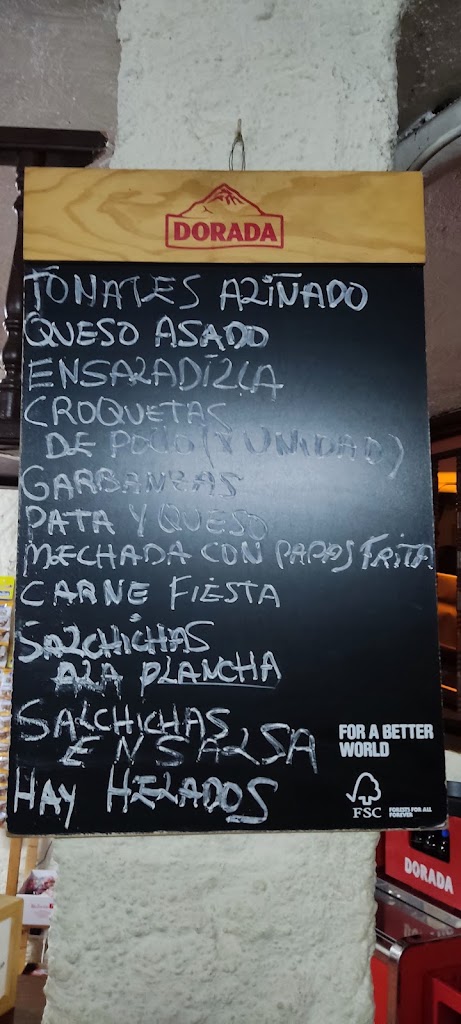 DORADA
TOMATES ALIÑADO
QUESO ASADO
ENSALADILLA
CROQUETAS
DE POLLO (X UNIDAD)
GARBANZAS
PATA Y QUESO
MECHADA CON PAPAS FRITA
CARNE FIESTA
SALCHICHAS
A LA PLANCHA
SALCHICHAS
EN SALSA
HAY HELADOS
FOR A BETTER
WORLD
FSC
FORESTS FOR ALL
FOREVER
DORADA